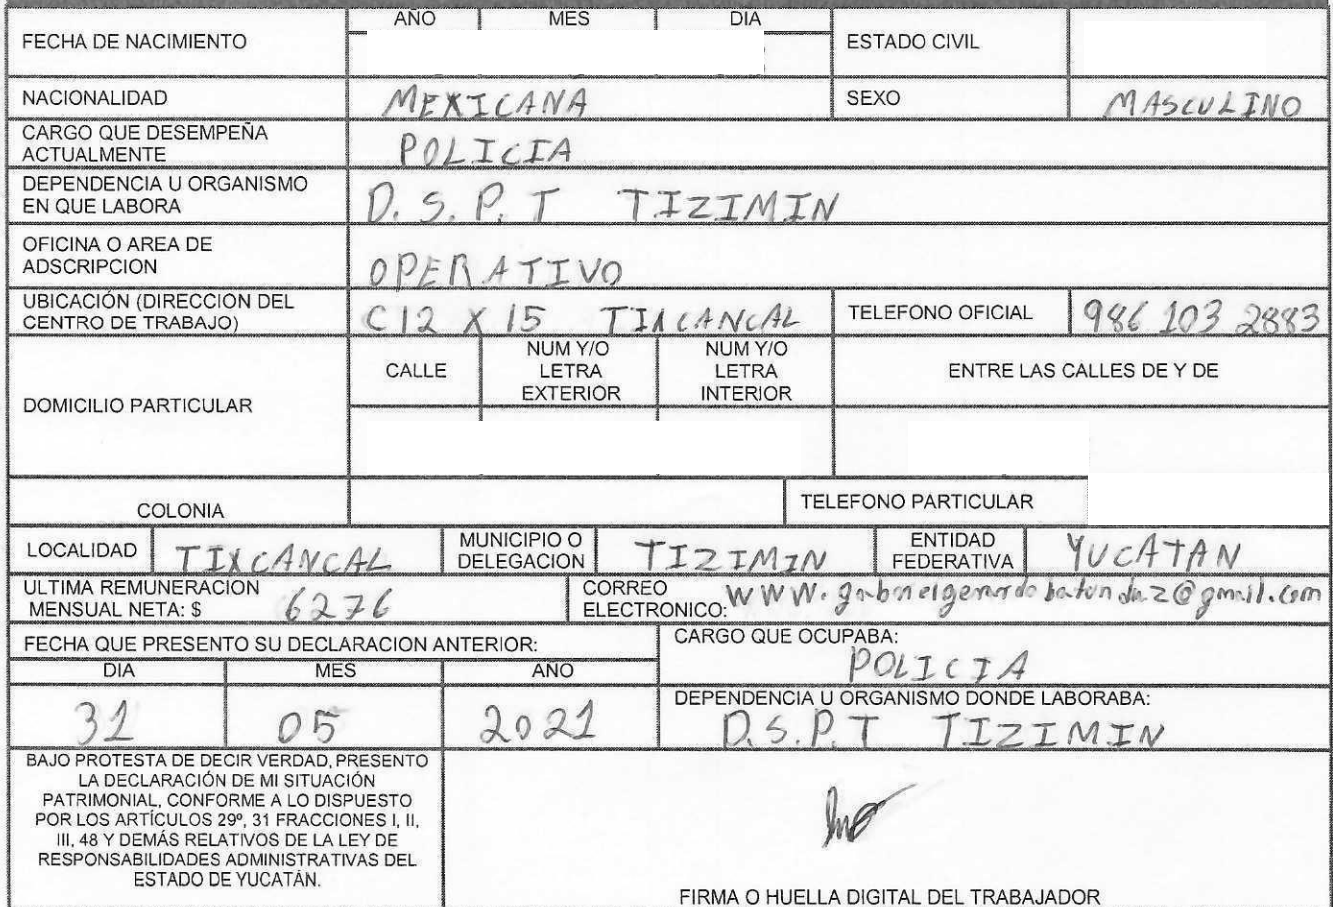 AÑO MES DIA
FECHA DE NACIMIENTO ESTADO CIVIL
NACIONALIDAD MEXICANA SEXO MASCULINO
CARGO QUE DESEMPEÑA
ACTUALMENTE POLICIA
DEPENDENCIA U ORGANISMO
EN QUE LABORA D. S. P. T TIZIMIN
OFICINA O AREA DE
ADSCRIPCION OPERATIVO
UBICACIÓN (DIRECCION DEL
CENTRO DE TRABAJO) C12 X 15 TIXCANCAL TELEFONO OFICIAL 986 103 2883
DOMICILIO PARTICULAR
CALLE
NUM Y/O
LETRA
EXTERIOR
NUM Y/O
LETRA
INTERIOR
ENTRE LAS CALLES DE Y DE
COLONIA TELEFONO PARTICULAR
LOCALIDAD TIXCANCAL
MUNICIPIO O
DELEGACION TIZIMIN
ENTIDAD
FEDERATIVA YUCATAN
ULTIMA REMUNERACION
MENSUAL NETA: $ 6276
CORREO
ELECTRONICO:
FECHA QUE PRESENTO SU DECLARACION ANTERIOR:
CARGO QUE OCUPABA:
POLICIA
DIA MES AÑO
31 05 2021
DEPENDENCIA U ORGANISMO DONDE LABORABA:
D.S.P.T TIZIMIN
BAJO PROTESTA DE DECIR VERDAD, PRESENTO
LA DECLARACIÓN DE MI SITUACIÓN
PATRIMONIAL, CONFORME A LO DISPUESTO
POR LOS ARTÍCULOS 29º, 31 FRACCIONES I, II,
III, 48 Y DEMÁS RELATIVOS DE LA LEY DE
RESPONSABILIDADES ADMINISTRATIVAS DEL
ESTADO DE YUCATÁN.
FIRMA O HUELLA DIGITAL DEL TRABAJADOR